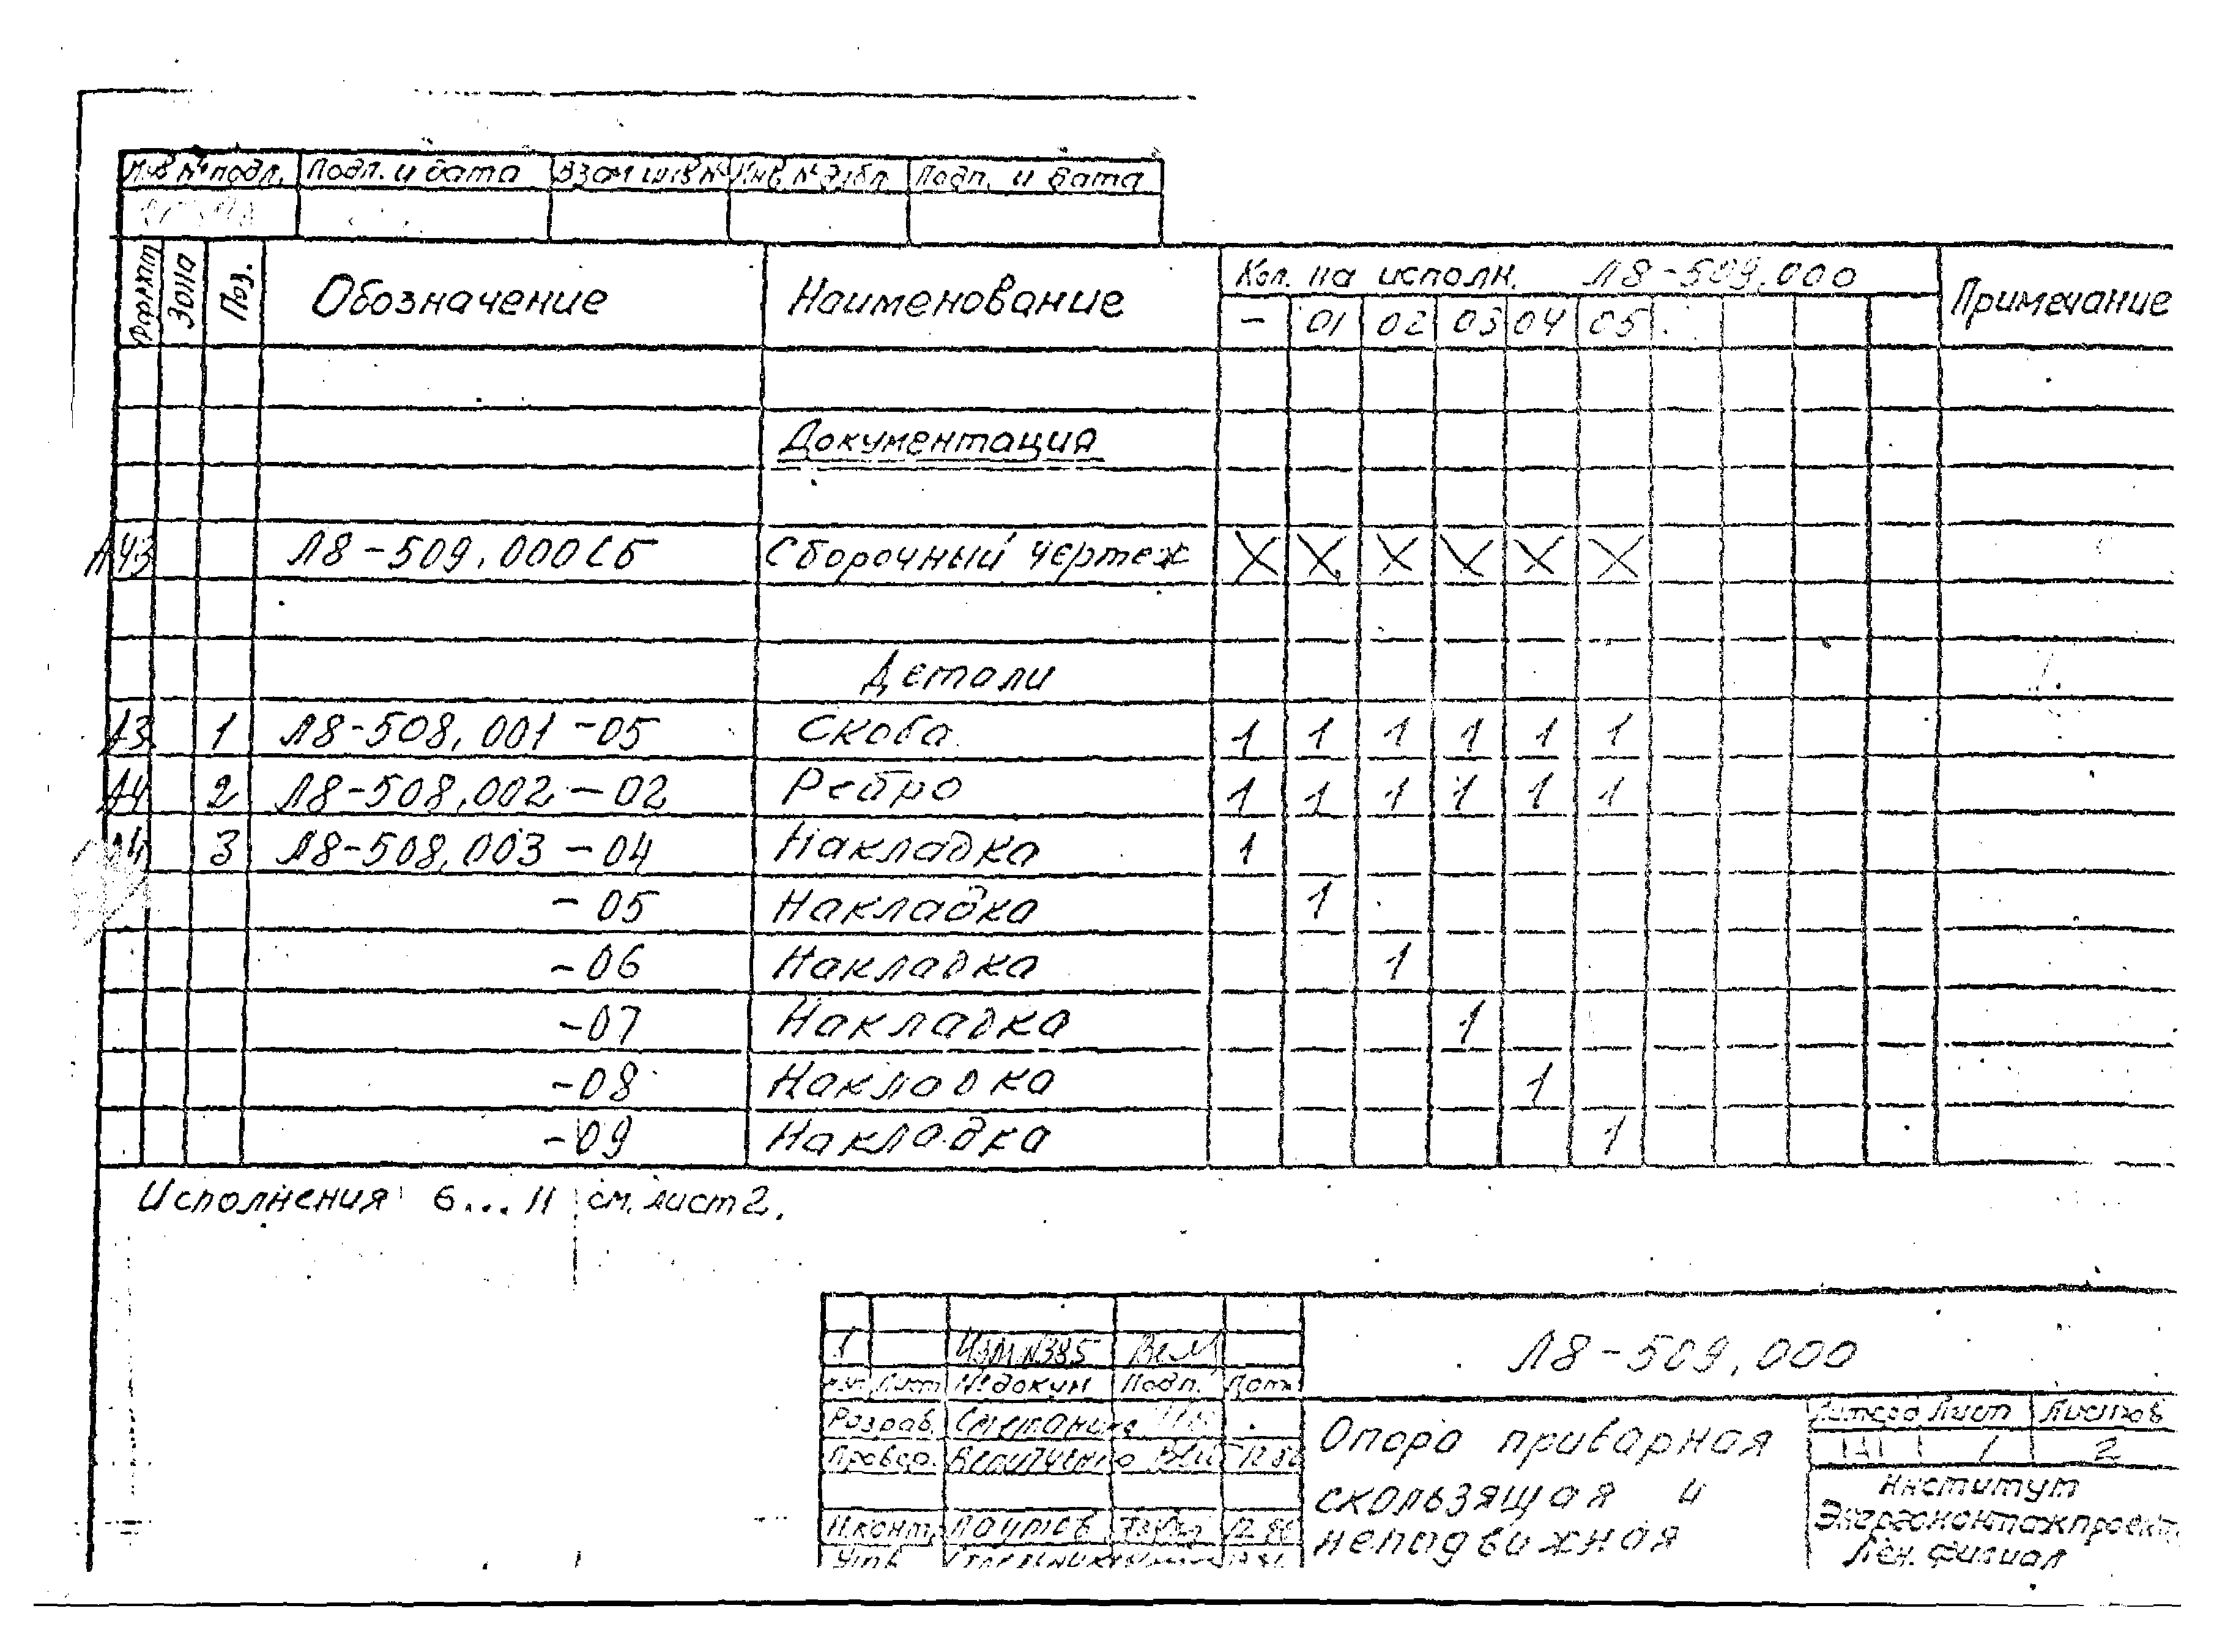 Инв № подл. Подп. и дата Взам инв № Инв. № дубл Подп. и дата
Формат Зона Поз. Обозначение Наименование Кол. на исполн. Л8-509.000 Примечание
- 01 02 03 04 05
Документация
А43 Л8-509.000СБ Сборочный чертеж X X X X X X
Детали
А3 1 Л8-508.001-05 Скоба 1 1 1 1 1 1
А4 2 Л8-508.002-02 Ребро 1 1 1 1 1 1
А4 3 Л8-508.003-04 Накладка 1
-05 Накладка 1
-06 Накладка 1
-07 Накладка 1
-08 Накладка 1
-09 Накладка 1
Исполнения 6...11 см. лист 2.
1 Изм №385
Л8-509.000
Лист № докум Подп. Дата
Разраб. Сметанина
Провер.
Н.конт.
Утв
Опора приварная
скользящая и
неподвижная
Литера Лист Листов
1 2
Институт
Энергомонтажпроект
Лен. филиал